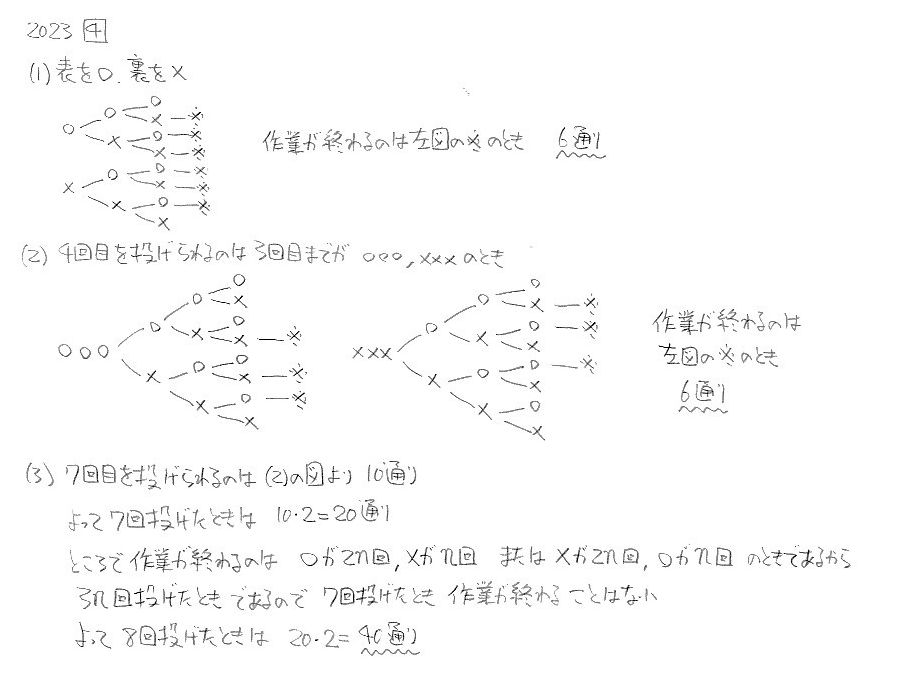 2023 4
(1) 表を○、裏を×
○ ○ ○
× ※
× ○ ※
× ※
× ○ ○ ※
× ※
× ○ ※
×
作業が終わるのは左図の※のとき 6通り
(2) 4回目を投げられるのは3回目までが ○○○, ×××のとき
○○○ ○ ○ ○
×
× ○ ※
×
× ○ ○
× ※
× ○ ※
×
××× ○ ○ ○
× ※
× ○ ※
×
× ○ ○ ※
×
× ○
×
作業が終わるのは
左図の※のとき
6通り
(3) 7回目を投げられるのは(2)の図より 10通り
よって7回投げたときは 10・2=20通り
ところで作業が終わるのは ○が2n回, ×がn回 または ×が2n回, ○がn回 のときであるから
3n回投げたときであるので 7回投げたとき 作業が終わることはない
よって 8回投げたときは 20・2=40通り